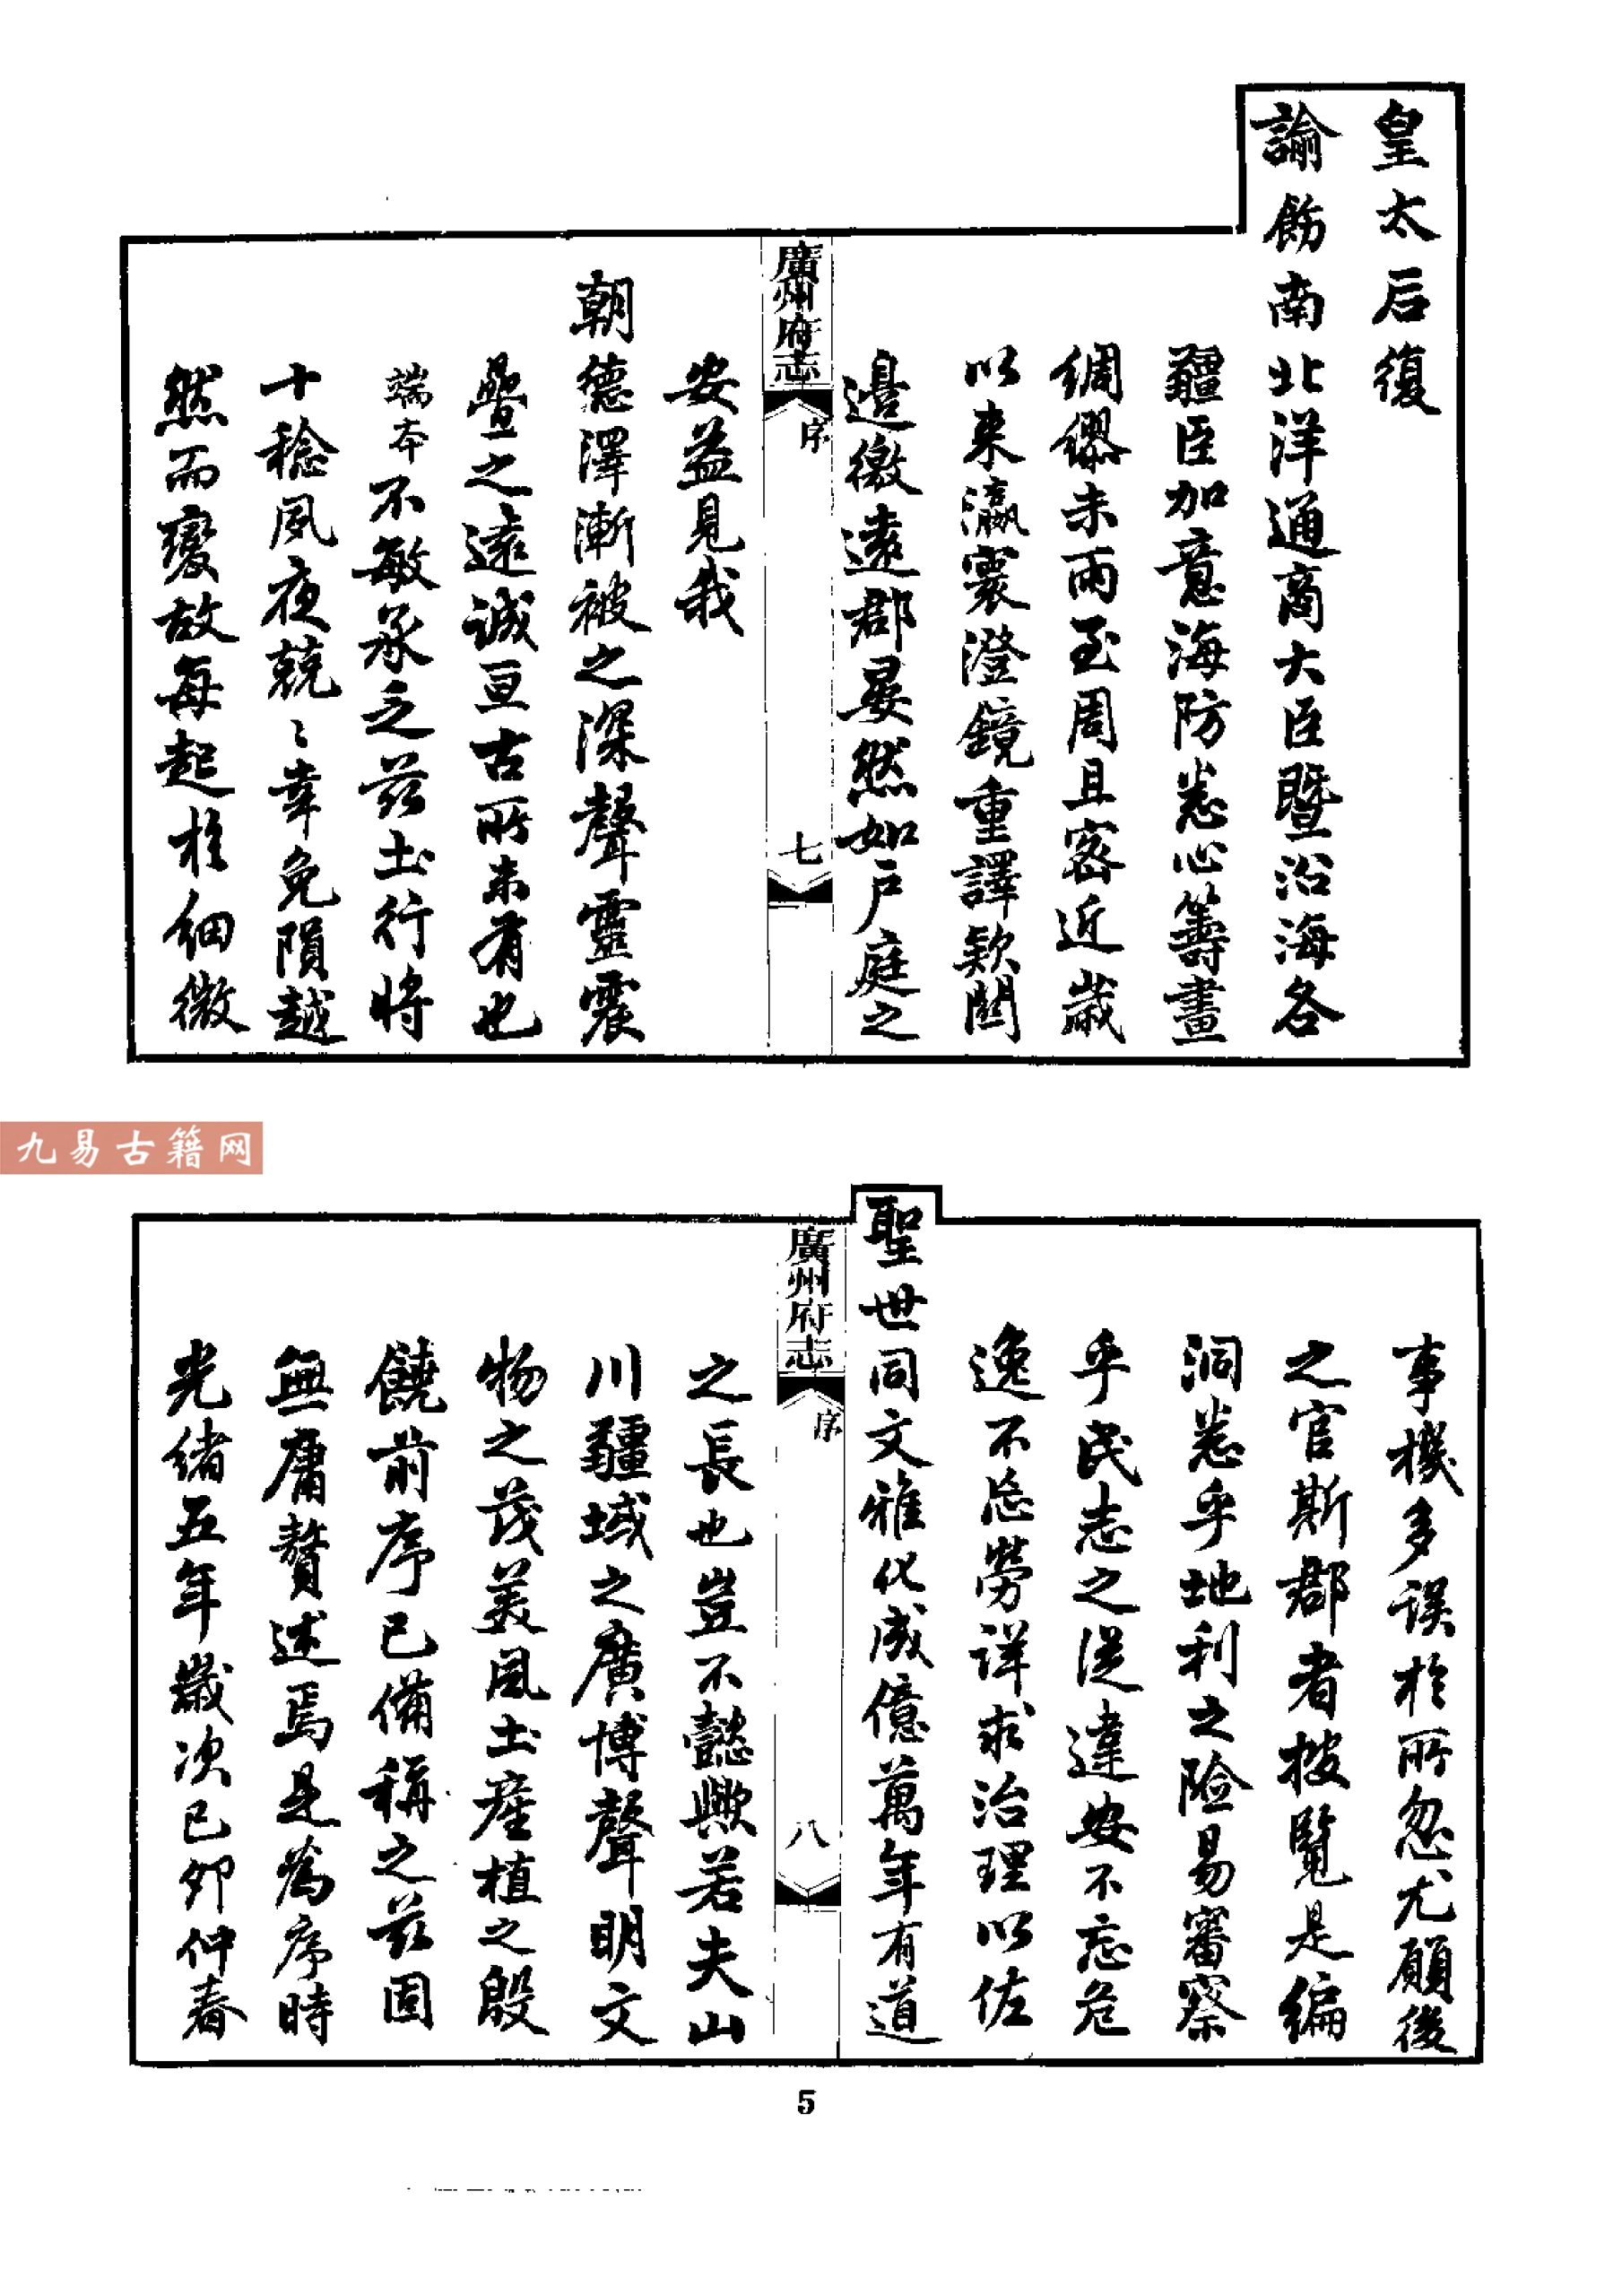 皇太后復
諭飭南北洋通商大臣暨沿海各
疆臣加意海防悉心籌畫
綢繆未雨至周且密近歲
以來瀛寰澄鏡重譯欵關
邊徼遠郡晏然如戶庭之
廣州府志
序
七
安益見我
朝德澤漸被之深聲靈震
疊之遠誠亘古所未有也
端本不敏承乏兹土行將
十稔夙夜兢〻幸免隕越
然而變故每起於細微
九易古籍网
事機多误於所忽尤願後
之官斯郡者披覽是編
洞悉乎地利之險易審察
乎民志之從違安不忘危
逸不忘勞詳求治理以佐
聖世同文雅化咸億萬年有道
廣州府志
序
八
之長也豈不懿歟若夫山
川疆域之廣博聲明文
物之茂美風土產植之殷
饒前序已備稱之兹固
無庸贅述焉是為序時
光緒五年歲次己卯仲春
5